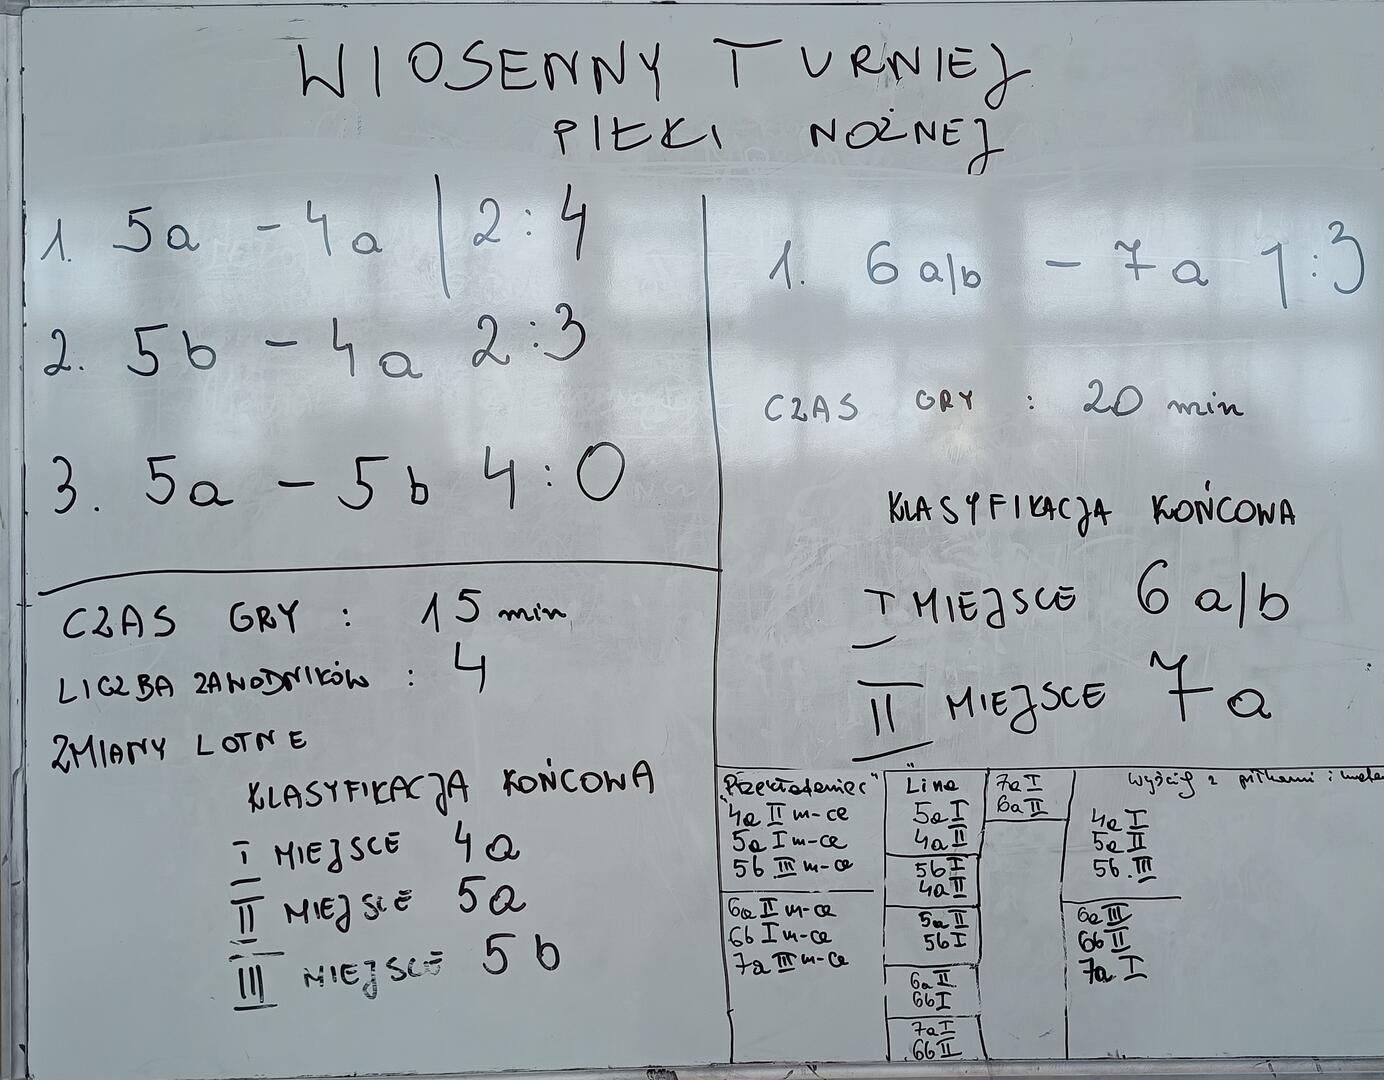 WIOSENNY TURNIEJ
PIŁKI NOŻNEJ
1. 5a - 4a | 2:4
2. 5b - 4a 2:3
3. 5a - 5b 4:0
CZAS GRY : 15 min
LICZBA ZAWODNIKÓW : 4
ZMIANY LOTNE
KLASYFIKACJA KOŃCOWA
I MIEJSCE 4a
II MIEJSCE 5a
III MIEJSCE 5b
1. 6a/b - 7a 1:3
CZAS GRY : 20 min
KLASYFIKACJA KOŃCOWA
I MIEJSCE 6a/b
II MIEJSCE 7a
"Przekładaniec"
4a II m-ce
5a I m-ce
5b III m-ce
6a II m-ce
6b I m-ce
7a III m-ce
Lina
5a I
4a II
5b I
4a II
5a II
5b I
6a II
6b I
7a I
6b II
7a I
6a II
Wyścig z piłkami i
4a I
5a II
5b. III
6a III
6b II
7a I